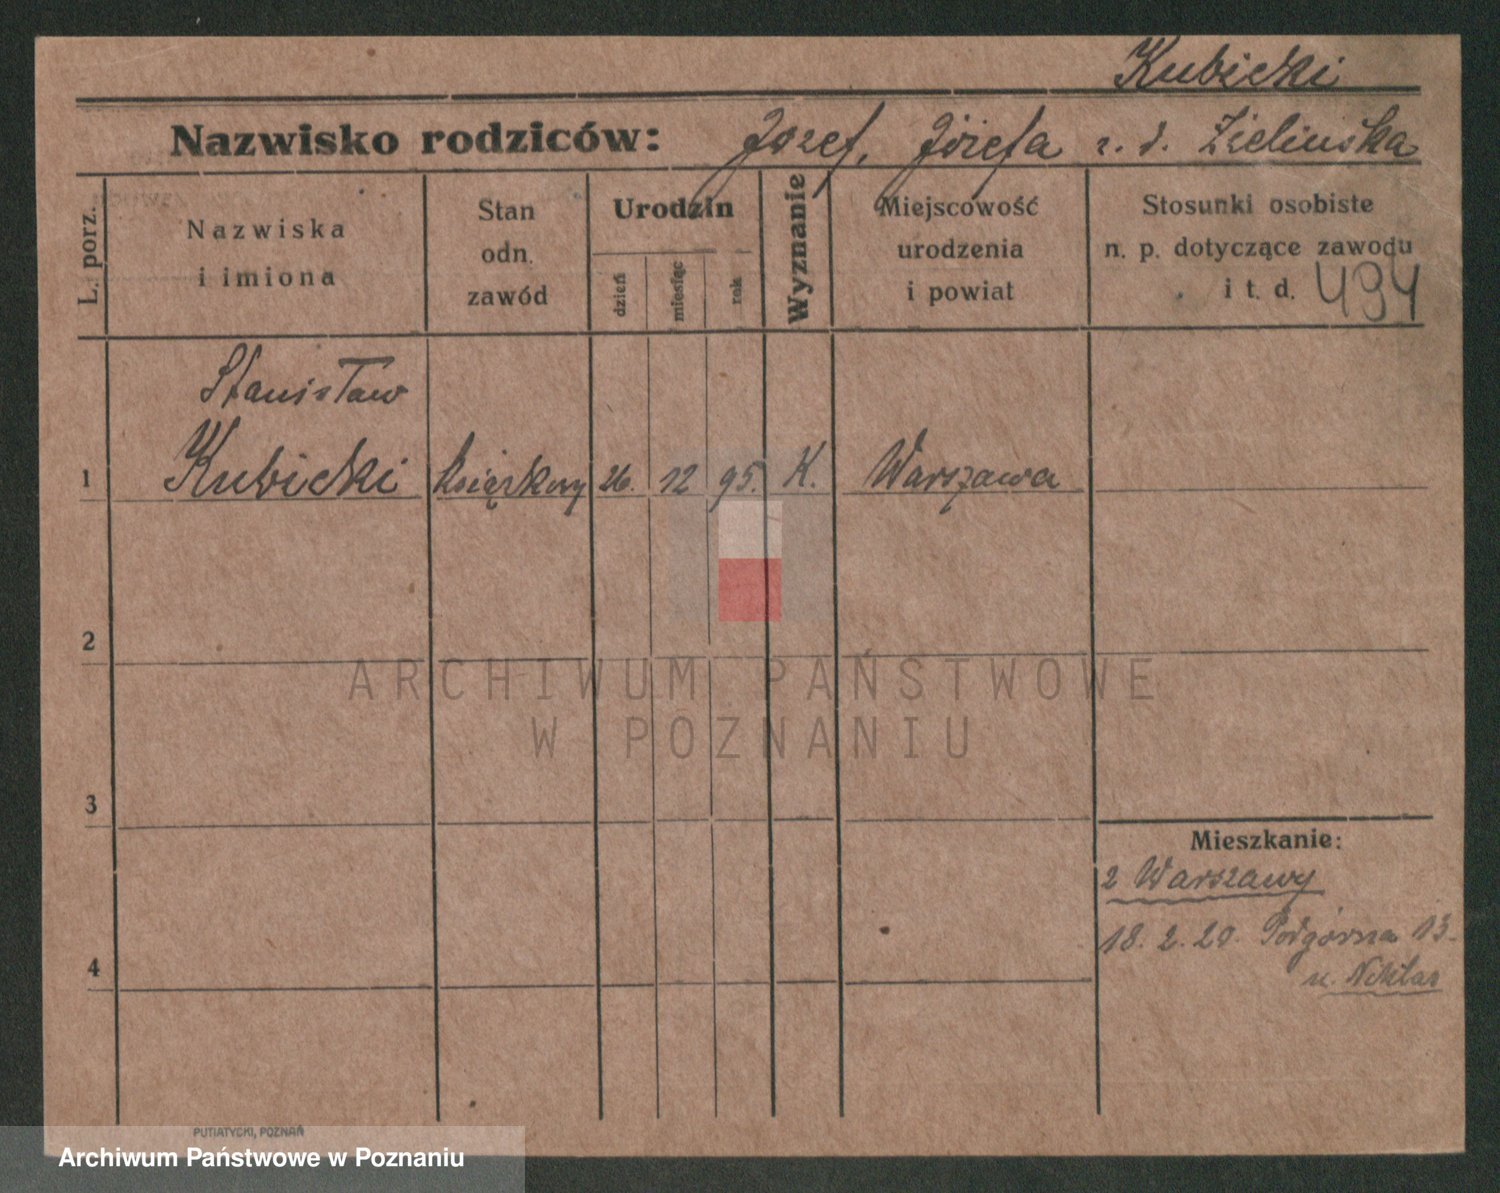 Kubicki
Nazwisko rodziców: Jozef, Józefa z. d. Zielinska
L. porz.
Nazwiska
i imiona
Stan
odn.
zawód
Urodzin
dzień
miesiąc
rok
Wyznanie
Miejscowość
urodzenia
i powiat
Stosunki osobiste
n. p. dotyczące zawodu
i t. d. 494
Stanisław
1 Kubicki 26. 12 95. K. Warszawa
2
3
4
Mieszkanie:
z Warszawy
18. 2. 20. Podgórna 13.
u.
PUTIATYCKI, POZNAŃ
ARCHIWUM PAŃSTWOWE
W POZNANIU
Archiwum Państwowe w Poznaniu